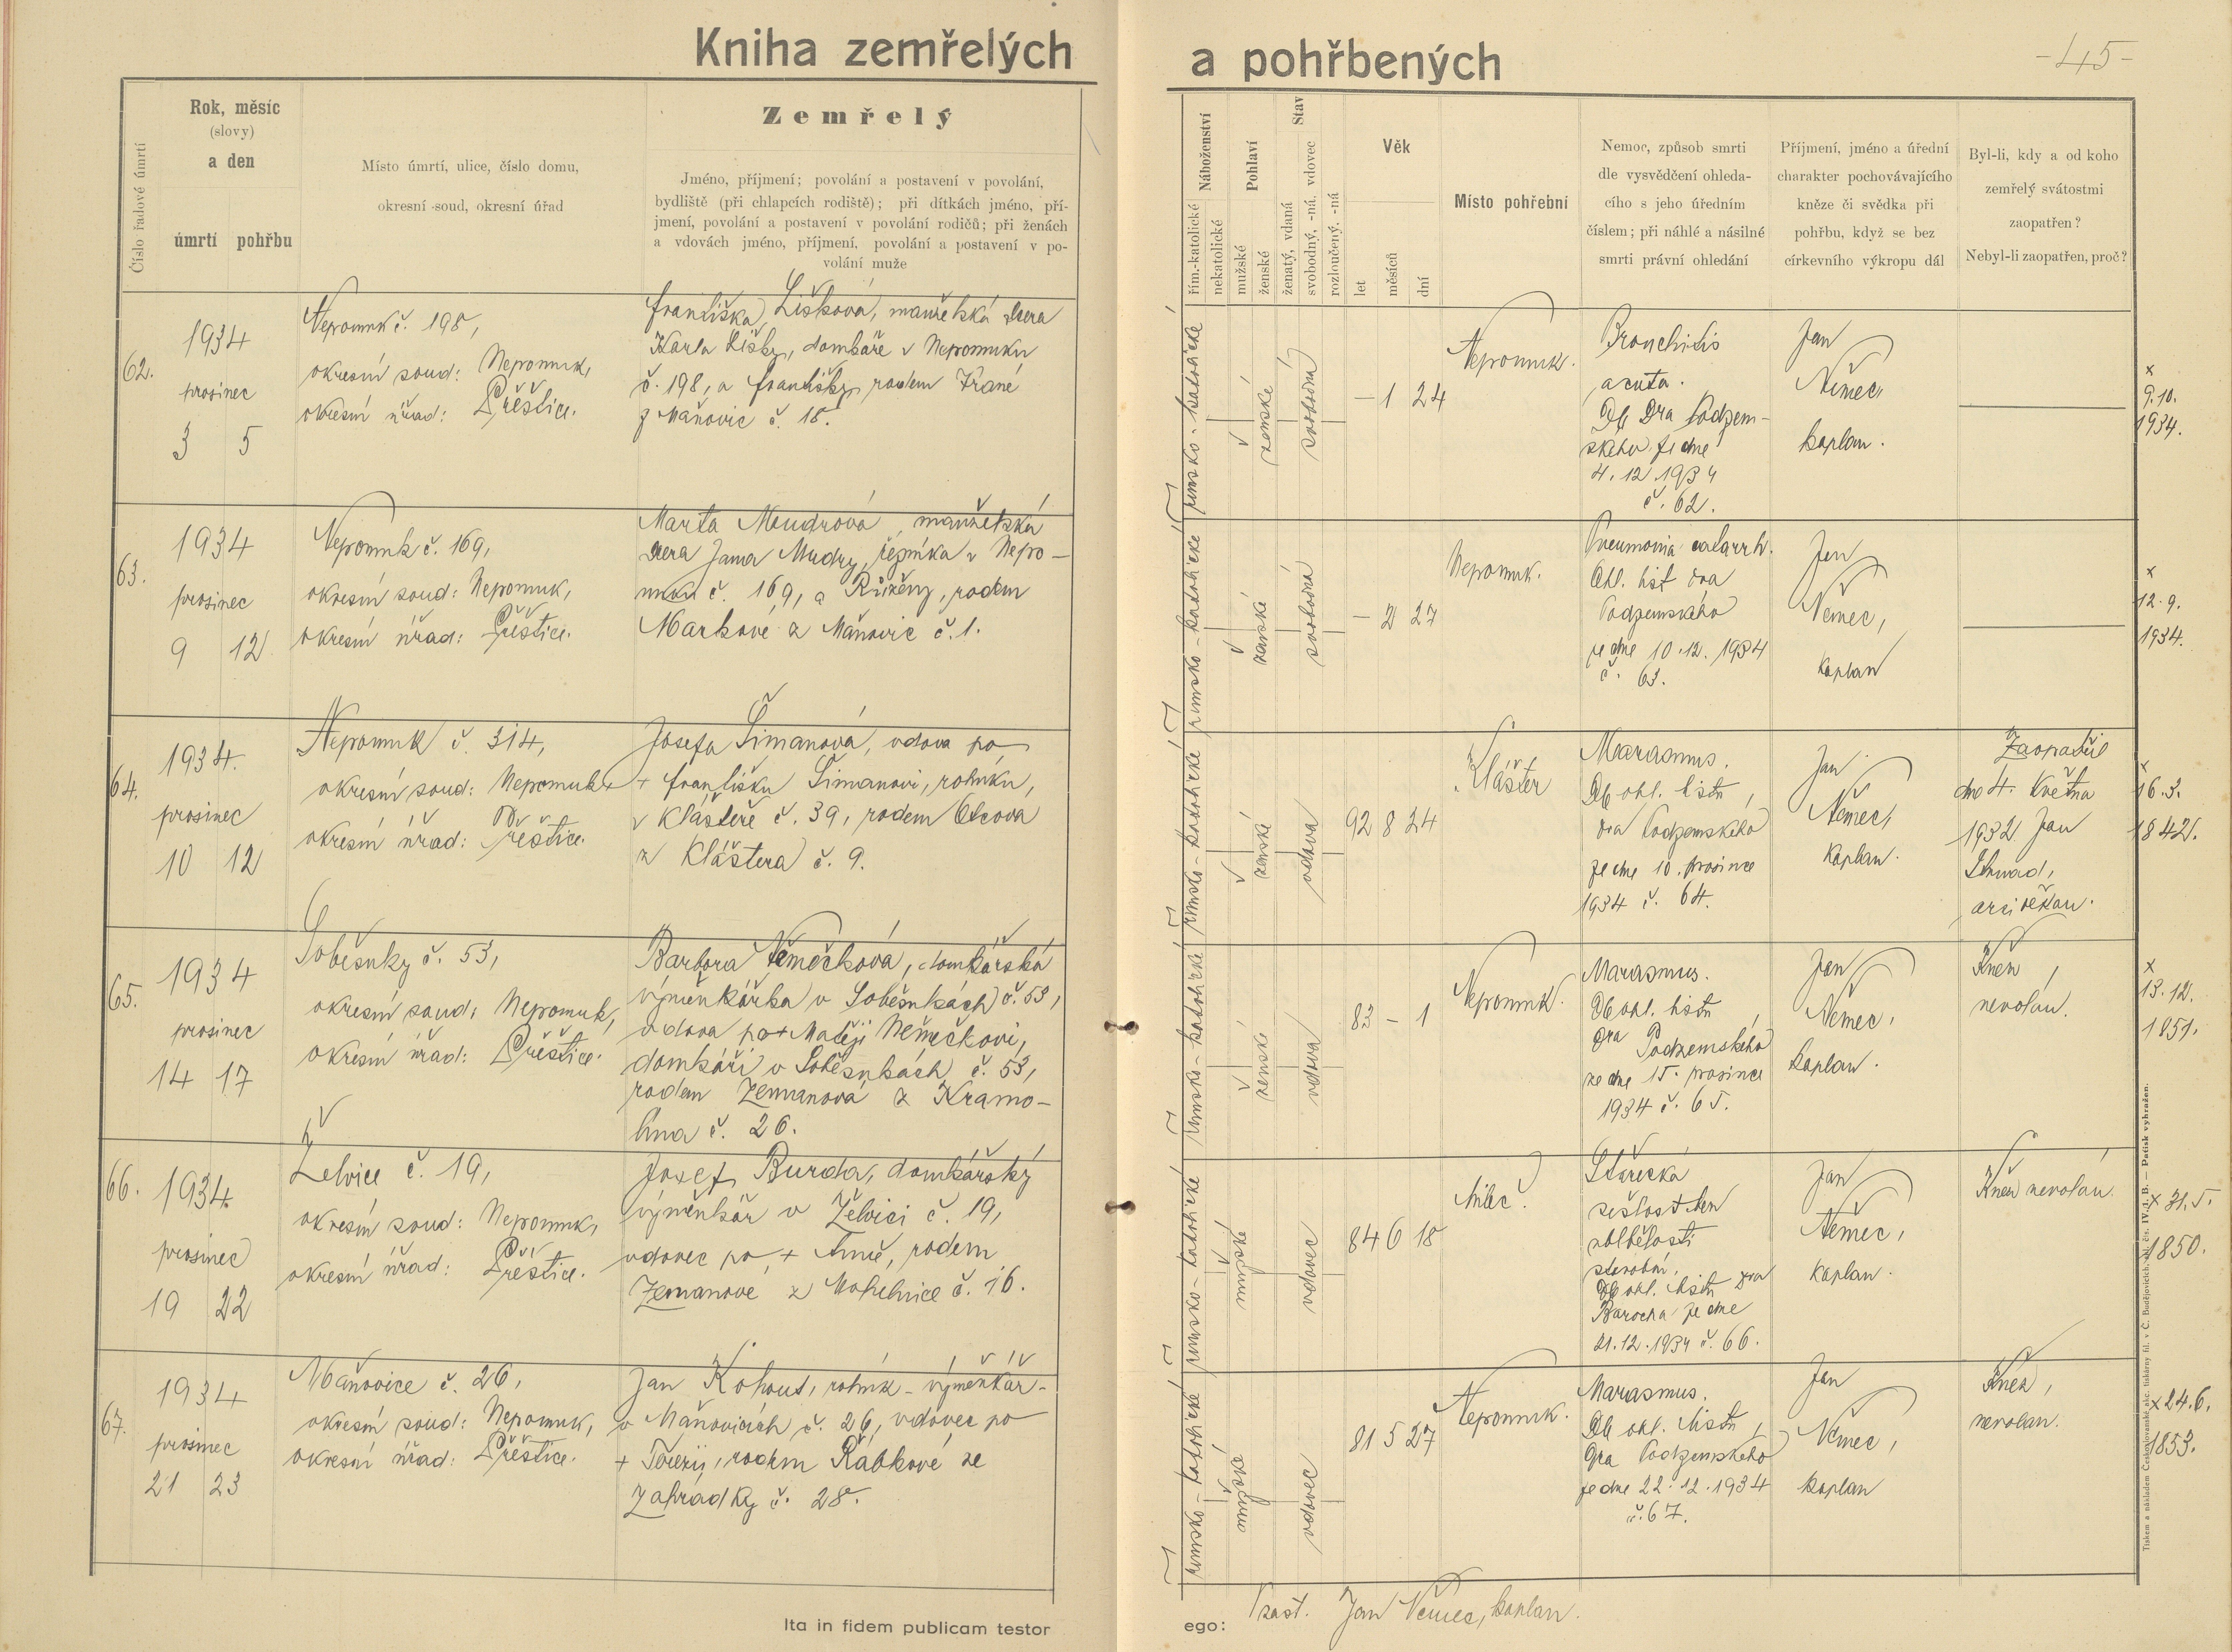 Kniha zemřelých
a pohřbených
-45-
Číslo řadové úmrtí
Rok, měsíc
(slovy)
a den
úmrtí pohřbu
Místo úmrtí, ulice, číslo domu,
okresní soud, okresní úřad
Zemřelý
Jméno, příjmení; povolání a postavení v povolání,
bydliště (při chlapcích rodiště); při dítkách jméno, pří-
jmení, povolání a postavení v povolání rodičů; při ženách
a vdovách jméno, příjmení, povolání a postavení v po-
volání muže
Náboženství
řím.-katolické
nekatolické
Pohlaví
mužské
ženské
Stav
ženatý, vdaná
svobodný, -ná, vdovec
rozloučený, -ná
Věk
let
měsíců
dní
Místo pohřební
Nemoc, způsob smrti
dle vysvědčení ohleda-
cího s jeho úředním
číslem; při náhlé a násilné
smrti právní ohledání
Příjmení, jméno a úřední
charakter pochovávajícího
kněze či svědka při
pohřbu, když se bez
církevního výkropu dál
Byl-li, kdy a od koho
zemřelý svátostmi
zaopatřen?
Nebyl-li zaopatřen, proč?
62.
1934
prosinec
3 5
Nepomuk č. 198,
okresní soud: Nepomuk,
okresní úřad: Přeštice.
Františka Lišková, manželská dcera
Karla Lišky, domkáře v Nepomuku
č. 198, a Františky, rodem
z Mañovic č. 18.
římsko-katolické
ženské
svobodná
— 1 24
Nepomuk.
Bronchitis
acuta.
Dra Podzem-
ského ze dne
4. 12. 1934
č. 62.
Jan
Němec,
kaplan.
×
9.10.
1934.
63.
1934
prosinec
9 12
Nepomuk č. 169,
okresní soud: Nepomuk,
okresní úřad: Přeštice.
Marta Moudrová, manželská
dcera Jana Mudry, řezníka v Nepo-
muku č. 169, a Růženy, rodem
Markové z Mañovic č. 1.
římsko-katolické
ženské
svobodná
— 2 27
Nepomuk.
Pneumonia catarrh.
Ohl. list dra
Podzemského
ze dne 10.12.1934
č. 63.
Jan
Němec,
kaplan
×
12.9.
1934.
64.
1934.
prosinec
10 12
Nepomuk č. 314,
okresní soud: Nepomuk
okresní úřad: Přeštice.
Josefa Šimanová, vdova po
+ Františku Šimanovi, rolníku,
v Klášteře č. 39, rodem
z Kláštera č. 9.
římsko-katolické
ženské
vdova
92 8 24
Klášter
Marasmus.
Dle ohl. listu
dra Podzemského
ze dne 10. prosince
1934 č. 64.
Jan
Němec,
kaplan.
Zaopatřil
dne 4. května
1932 Jan
arciděkan.
×
16.3.
1842.
65.
1934
prosinec
14 17
Soběsuky č. 53,
okresní soud: Nepomuk,
okresní úřad: Přeštice.
Barbora Němečková, domkářská
výměnkářka v Soběsukách č. 53,
vdova po + Matěji Němečkovi,
domkáři v Soběsukách č. 53,
rodem Zemanová z Kramo-
lína č. 26.
římsko-katolické
ženské
vdova
83 — 1
Nepomuk.
Marasmus.
Dle ohl. listu
dra Podzemského
ze dne 15. prosince
1934 č. 65.
Jan
Němec,
kaplan.
Kněz
nevolán.
×
13.12.
1851.
66.
1934
prosinec
19 22
Želvice č. 19,
okresní soud: Nepomuk,
okresní úřad: Přeštice.
Josef Burda, domkářský
výměnkář v Želvici č. 19,
vdovec po + Anně, rodem
Zemanové z Mohelnice č. 16.
římsko-katolické
mužské
vdovec
84 6 18
Milec.
Stařecká
sešlost
Dle ohl. listu dra
ze dne
21.12.1934 č. 66.
Jan
Němec,
kaplan.
Kněz nevolán.
× 31.5.
1850.
67.
1934
prosinec
21 23
Mañovice č. 26,
okresní soud: Nepomuk,
okresní úřad: Přeštice.
Jan Kohout, rolník-výměnkář-
v Mañovicích č. 26, vdovec po
+ Terezii, rodem Rábkové ze
Zahrádky č. 28.
římsko-katolické
mužské
vdovec
81 5 27
Nepomuk.
Marasmus.
Dle ohl. listu
dra Podzemského
ze dne 22.12.1934
č. 67.
Jan
Němec,
kaplan
Kněz,
nevolán.
× 24.6.
1853.
Ita in fidem publicam testor
ego: zast. Jan Němec, kaplan.